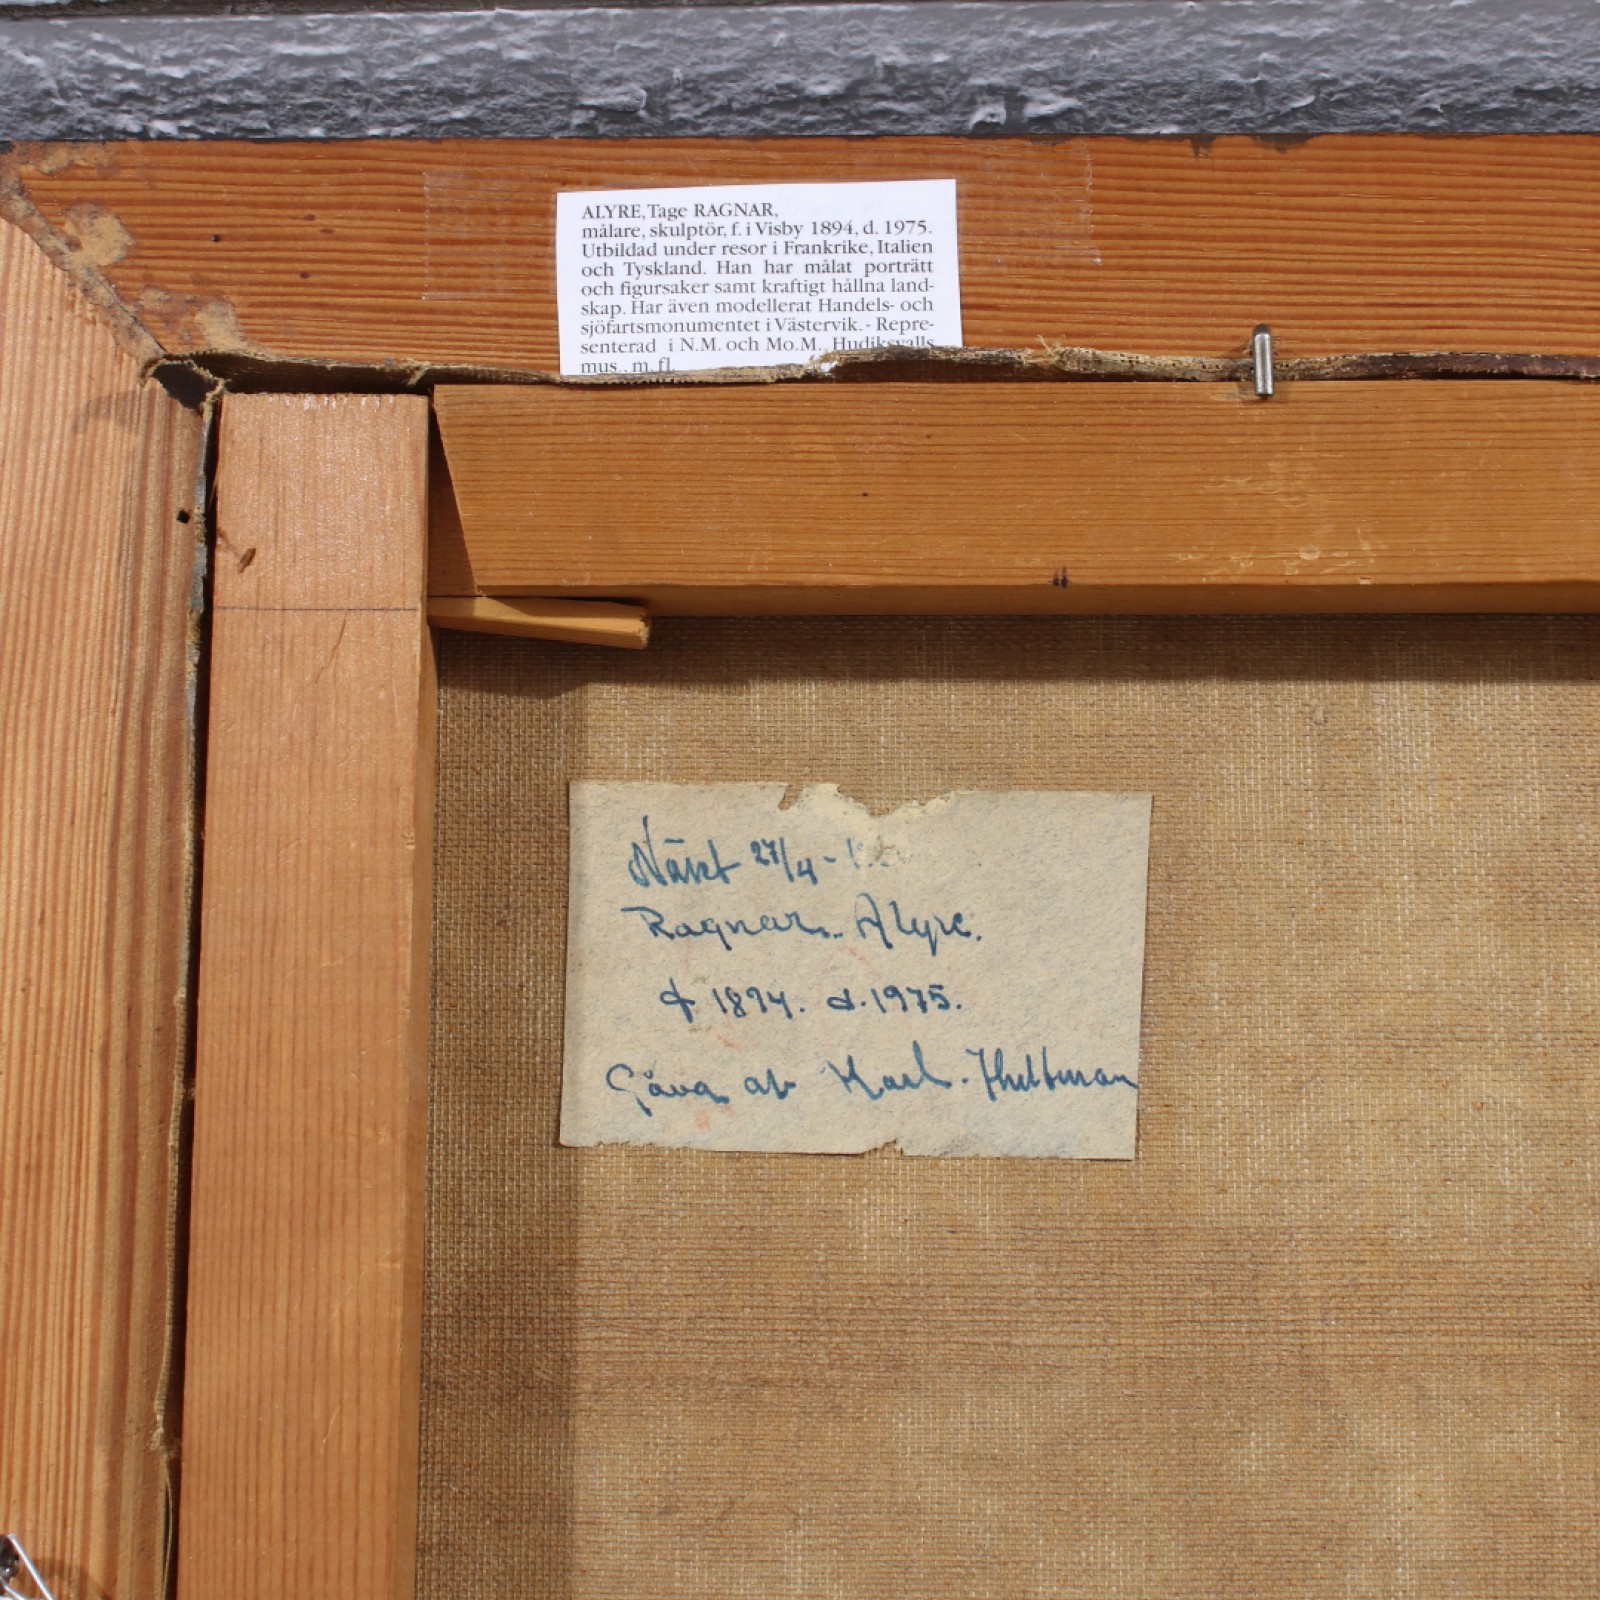 ALYRE, Tage RAGNAR,
målare, skulptör, f. i Visby 1894, d. 1975.
Utbildad under resor i Frankrike, Italien
och Tyskland. Han har målat porträtt
och figursaker samt kraftigt hållna land-
skap. Har även modellerat Handels- och
sjöfartsmonumentet i Västervik. - Repre-
senterad i N.M. och Mo.M., Hudiksvalls
mus., m. fl.
27/4 -
Ragnar. Alyre.
f 1894. d. 1975.
Gåva av Karl. Hultman